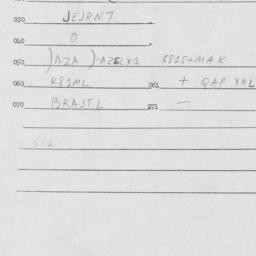 030 JEJRN7
040 0
050 )AZA )-AZELX1 6815+MAK
060 K81ML 061 + QAP XAL
070 BRAJTL 071 —
681